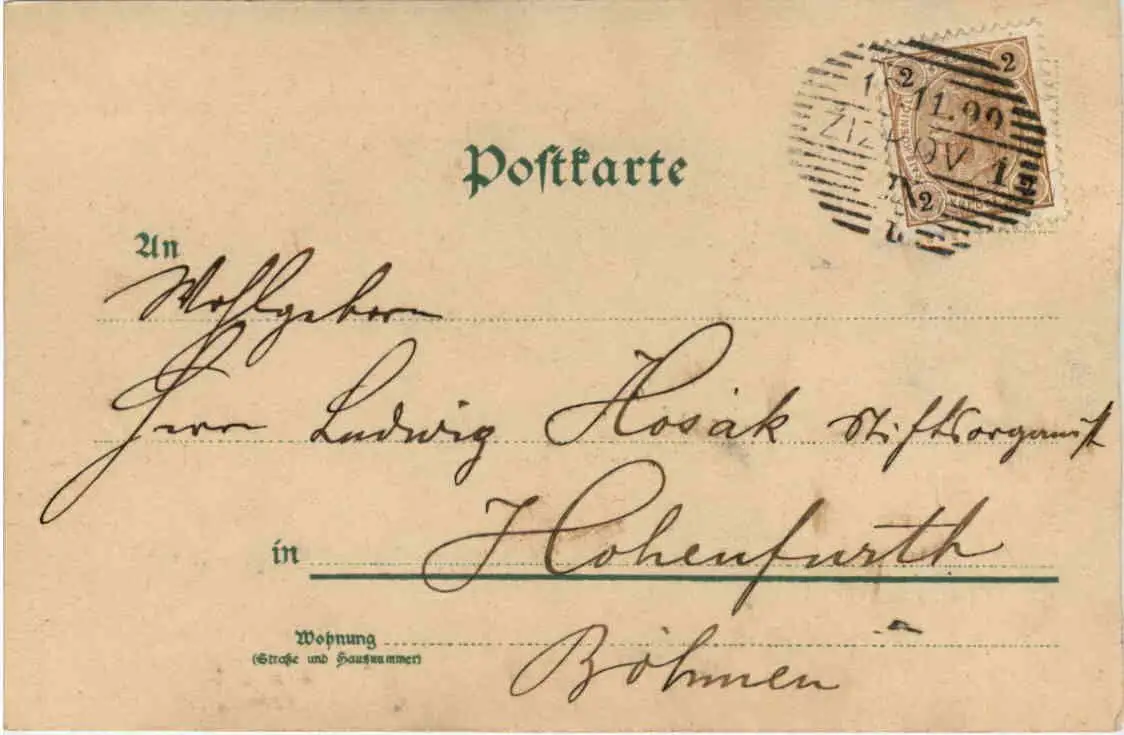 Postkarte
11.99
ŽIŽKOV 1
2
2
2
2
An
Wohlgeborn
Herrn Ludwig Hosák Stiftsorganist
in Hohenfurth
Wohnung
(Straße und Hausnummer)
Böhmen